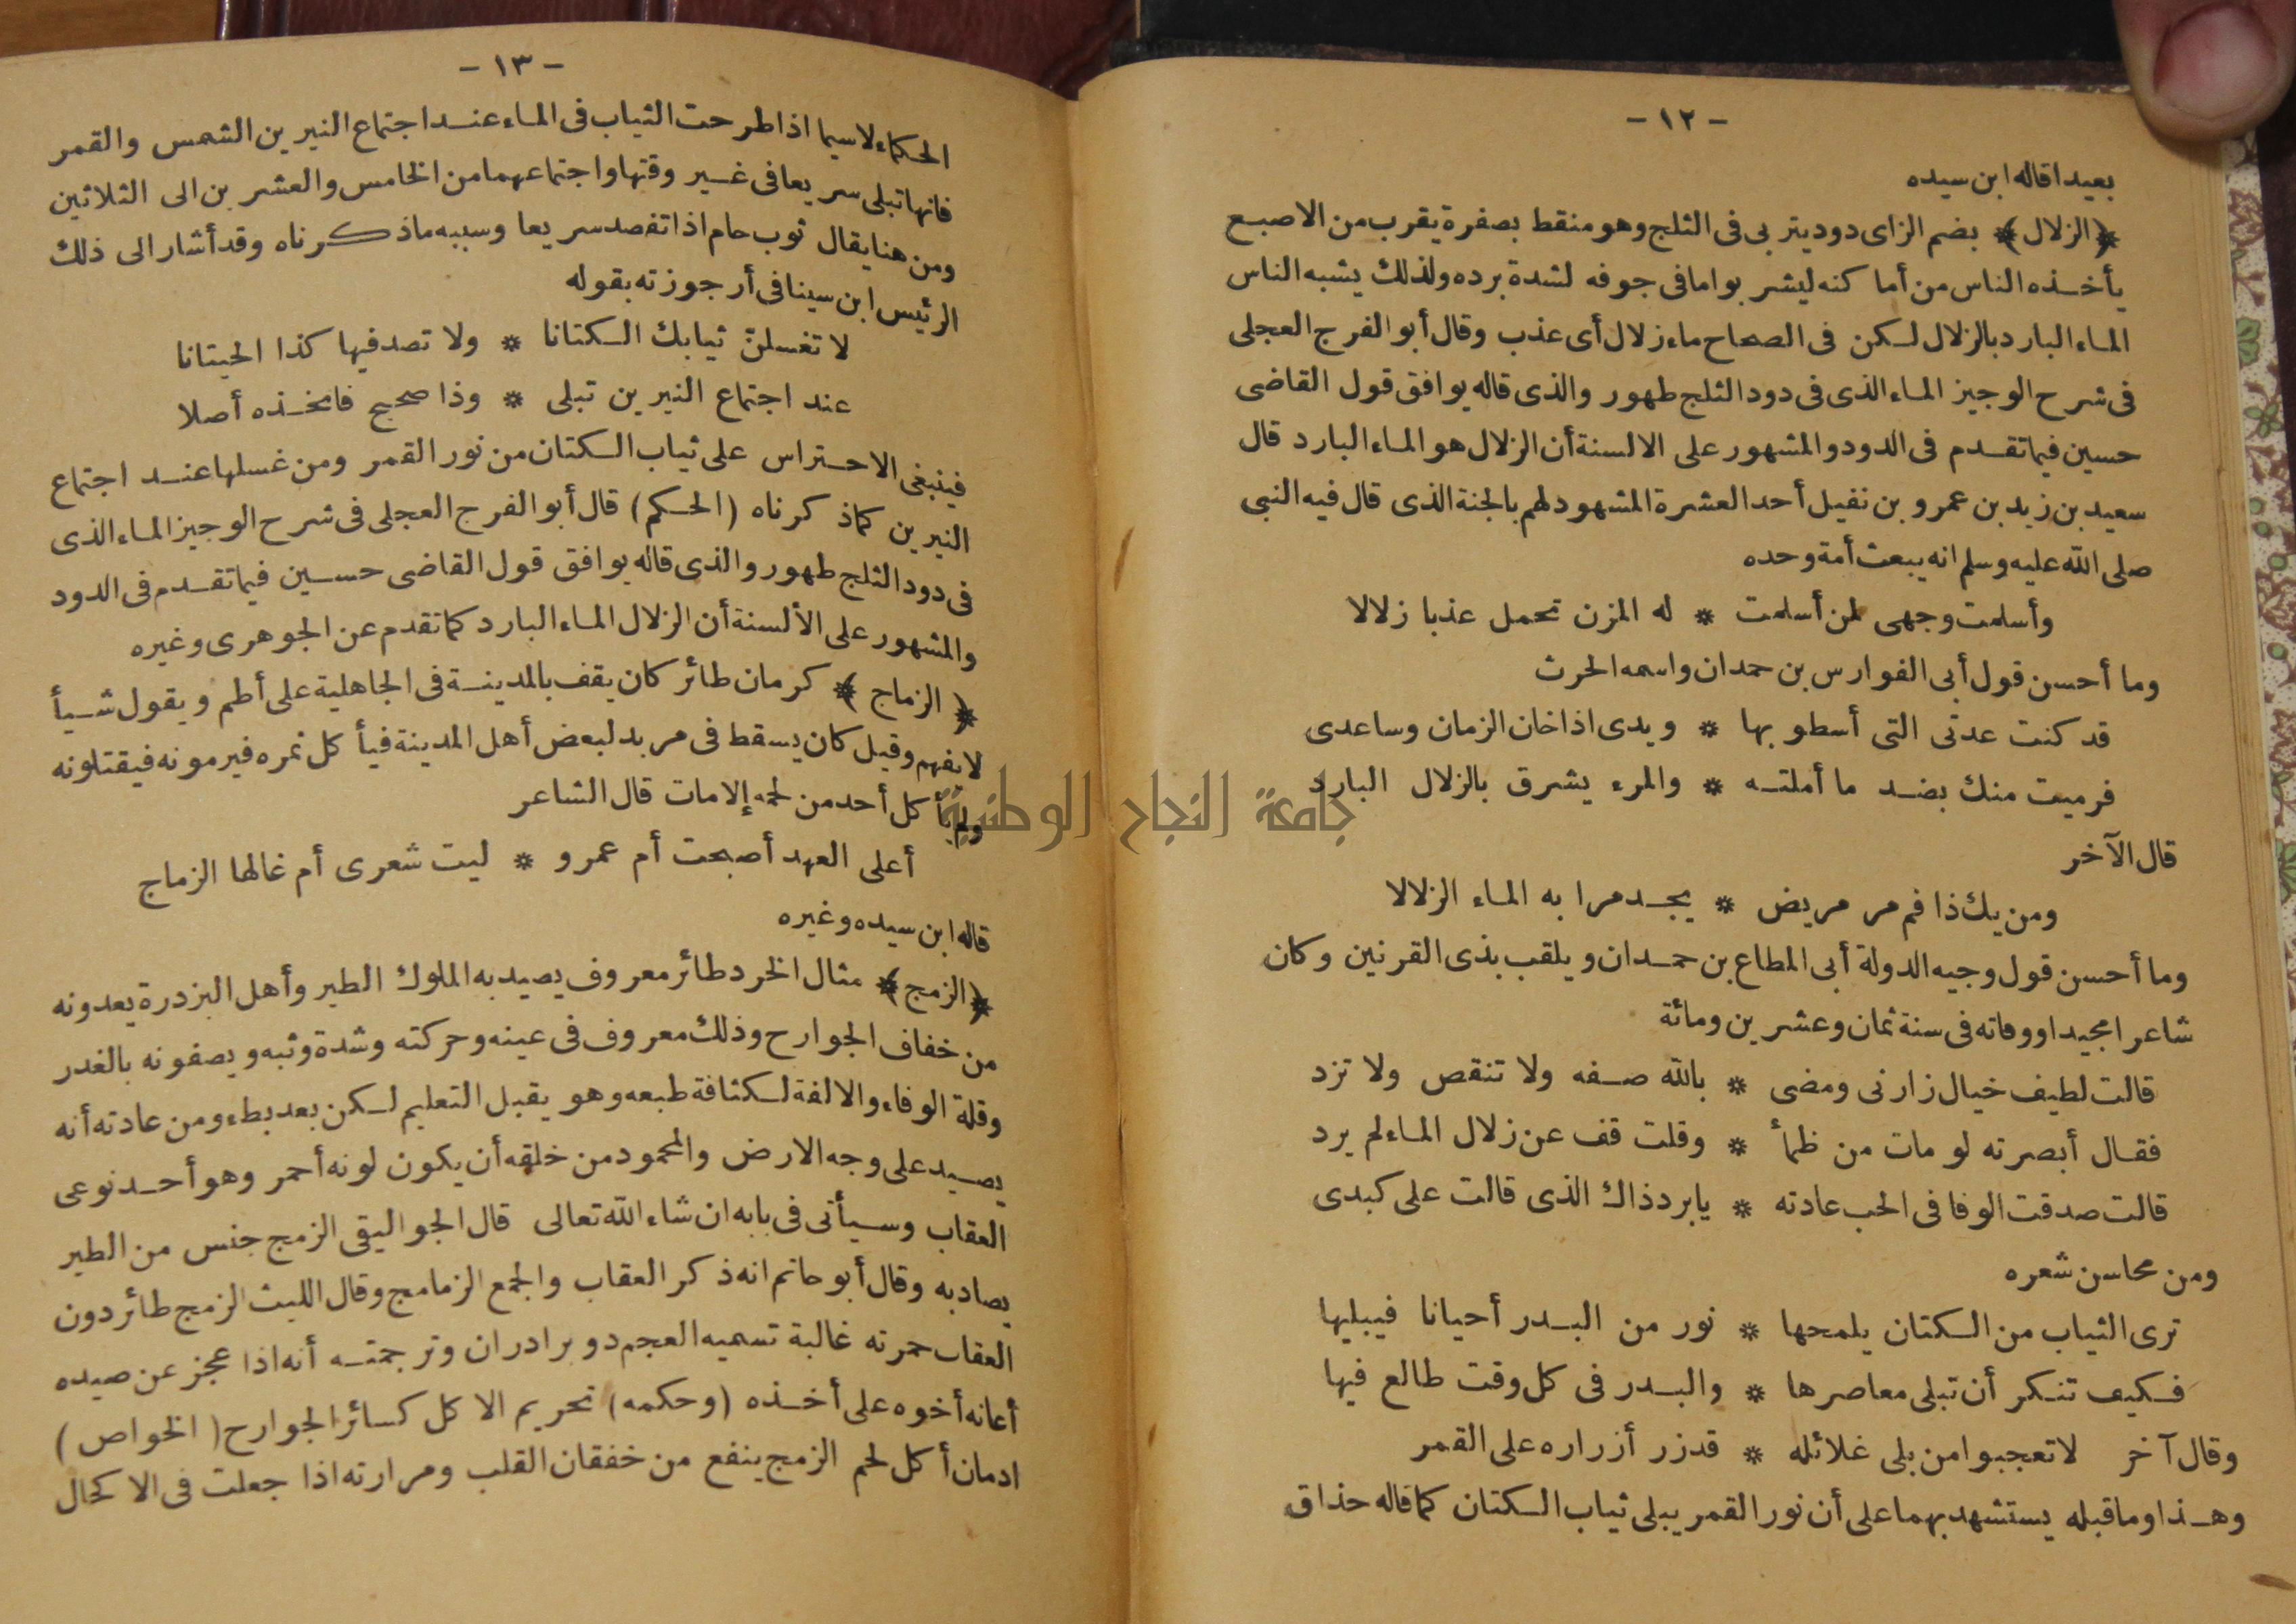 - ١٢ -
بعيدا قاله ابن سيده
﴿الزلال﴾ بضم الزاى دود يتربى فى الثلج وهو منقط بصفرة يقرب من الاصبع
يأخذه الناس من أماكنه ليشربوا ما فى جوفه لشدة برده ولذلك يشبه الناس
الماء البارد بالزلال لكن فى الصحاح ماء زلال أى عذب وقال أبو الفرج العجلى
فى شرح الوجيز الماء الذى فى دود الثلج طهور والذى قاله يوافق قول القاضى
حسين فيما تقدم فى الدود والمشهور على الالسنة أن الزلال هو الماء البارد قال
سعيد بن زيد بن عمرو بن نفيل أحد العشرة المشهود لهم بالجنة الذى قال فيه النبى
صلى الله عليه وسلم انه يبعث أمة وحده
وأسلمت وجهى لمن أسلمت * له المزن تحمل عذبا زلالا
وما أحسن قول أبى الفوارس بن حمدان واسمه الحرث
قد كنت عدتى التى أسطو بها * ويدى اذا خان الزمان وساعدى
فرميت منك بضد ما أملته * والمرء يشرق بالزلال البارد
قال الآخر
ومن يك ذا فم مر مريض * يجد مرا به الماء الزلالا
وما أحسن قول وجيه الدولة أبى المطاع بن حمدان ويلقب بذى القرنين وكان
شاعرا مجيدا ووفاته فى سنة ثمان وعشرين ومائة
قالت لطيف خيال زارنى ومضى * بالله صفه ولا تنقص ولا تزد
فقال أبصرته لو مات من ظمأ * وقلت قف عن زلال الماء لم يرد
قالت صدقت الوفا فى الحب عادته * يا برد ذاك الذى قالت على كبدى
ومن محاسن شعره
ترى الثياب من الكتان يلمحها * نور من البدر أحيانا فيبليها
فكيف تنكر أن تبلى معاصرها * والبدر فى كل وقت طالع فيها
وقال آخر لا تعجبوا من بلى غلائله * قد زر أزراره على القمر
وهذا وما قبله يستشهد بهما على أن نور القمر يبلى ثياب الكتان كما قاله حذاق
- ١٣ -
الحكماء لا سيما اذا طرحت الثياب فى الماء عند اجتماع النيرين الشمس والقمر
فانها تبلى سريعا فى غير وقتها واجتماعهما من الخامس والعشرين الى الثلاثين
ومن هنا يقال ثوب حام اذا تفصد سريعا وسببه ما ذكرناه وقد أشار الى ذلك
الرئيس ابن سينا فى أرجوزته بقوله
لا تغسلن ثيابك الكتانا * ولا تصد فيها كذا الحيتانا
عند اجتماع النيرين تبلى * وذا صحيح فاتخذه أصلا
فينبغى الاحتراس على ثياب الكتان من نور القمر ومن غسلها عند اجتماع
النيرين كما ذكرناه (الحكم) قال أبو الفرج العجلى فى شرح الوجيز الماء الذى
فى دود الثلج طهور والذى قاله يوافق قول القاضى حسين فيما تقدم فى الدود
والمشهور على الألسنة أن الزلال الماء البارد كما تقدم عن الجوهرى وغيره
﴿الزماج﴾ كرمان طائر كان يقف بالمدينة فى الجاهلية على أطم ويقول شيأ
لا يفهم وقيل كان يسقط فى مربد لبعض أهل المدينة فيأكل تمره فيرمونه فيقتلونه
ولم يأكل أحد من لحمه إلا مات قال الشاعر
أعلى العهد أصبحت أم عمرو * ليت شعرى أم غالها الزماج
قاله ابن سيده وغيره
﴿الزمج﴾ مثال الخرد طائر معروف يصيد به الملوك الطير وأهل البزدرة يعدونه
من خفاف الجوارح وذلك معروف فى عينه وحركته وشدة وثبه ويصفونه بالغدر
وقلة الوفاء والالفة لكثافة طبعه وهو يقبل التعليم لكن بعد بطء ومن عادته أنه
يصيد على وجه الارض والمحمود من خلقه أن يكون لونه أحمر وهو أحد نوعى
العقاب وسيأتى فى بابه ان شاء الله تعالى قال الجواليقى الزمج جنس من الطير
يصاد به وقال أبو حاتم انه ذكر العقاب والجمع الزمامج وقال الليث الزمج طائر دون
العقاب حمرته غالبة تسميه العجم دو برادران وترجمته أنه اذا عجز عن صيده
أعانه أخوه على أخذه (وحكمه) تحريم الاكل كسائر الجوارح (الخواص)
ادمان أكل لحم الزمج ينفع من خفقان القلب ومرارته اذا جعلت فى الاكحال
جامعة النجاح الوطنية